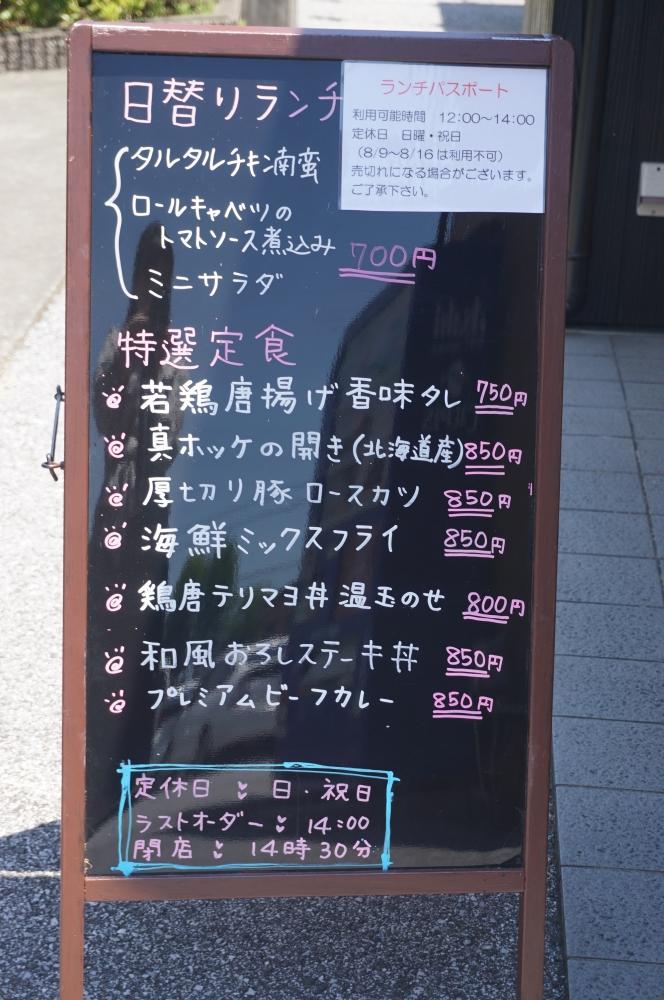 日替りランチ
ランチパスポート
利用可能時間　12:00～14:00
定休日　日曜・祝日
（8/9～8/16は利用不可）
売切れになる場合がございます。
ご了承下さい。
タルタルチキン南蛮
ロールキャベツの
トマトソース煮込み 700円
ミニサラダ
特選定食
若鶏唐揚げ香味タレ 750円
真ホッケの開き(北海道産) 850円
厚切り豚ロースカツ 850円
海鮮ミックスフライ 850円
鶏唐テリマヨ丼 温玉のせ 800円
和風おろしステーキ丼 850円
プレミアムビーフカレー 850円
定休日 日・祝日
ラストオーダー 14:00
閉店 14時30分